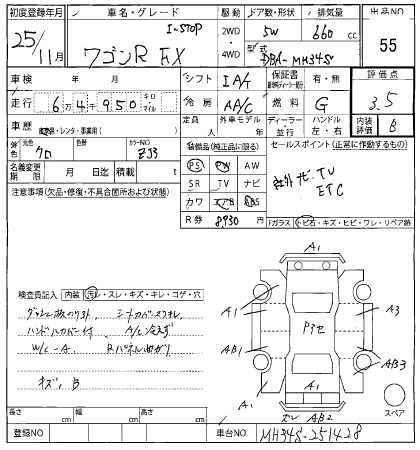 初度登録年月 車名・グレード 駆動 ドア数・形状 排気量 出品NO
25/11月 ワゴンR FX I-STOP 2WD・4WD 5W 660cc 55
型式 DBA-MH34S
車検 年 月 シフト IAT 保証書 有・無 評価点
走行 6万4千950 キロ・マイル 冷房 AAC 燃料 G 3.5
車歴 自家用・レンタ・事業用( ) 定員 人 外車モデル 年 ディーラー 並行 ハンドル 左・右 内装評価 B
色 元色 クロ 色替 カラーNO ZJ3 装備品(純正品に限る) セールスポイント(正常に作動するもの)
名義変更期限 月 日迄 積載 t PS PW AW
注意事項(欠品・修復・不具合箇所および状態) SR TV ナビ
社外ナビ、TV
ETC
カワ エアB ABS
R券 8930円
Fガラス トビ石・キズ・ヒビ・ワレ・リペア跡
検査員記入 内装 汚レ・スレ・キズ・キレ・コゲ・穴
ハンドルカバー付
W/C-A
A1
A1 A3
P3セ
AB1 A1
AB3
A1 A1
AB2
スペア
長さ cm 幅 cm 高さ cm
登録NO 車台NO MH34S-251428